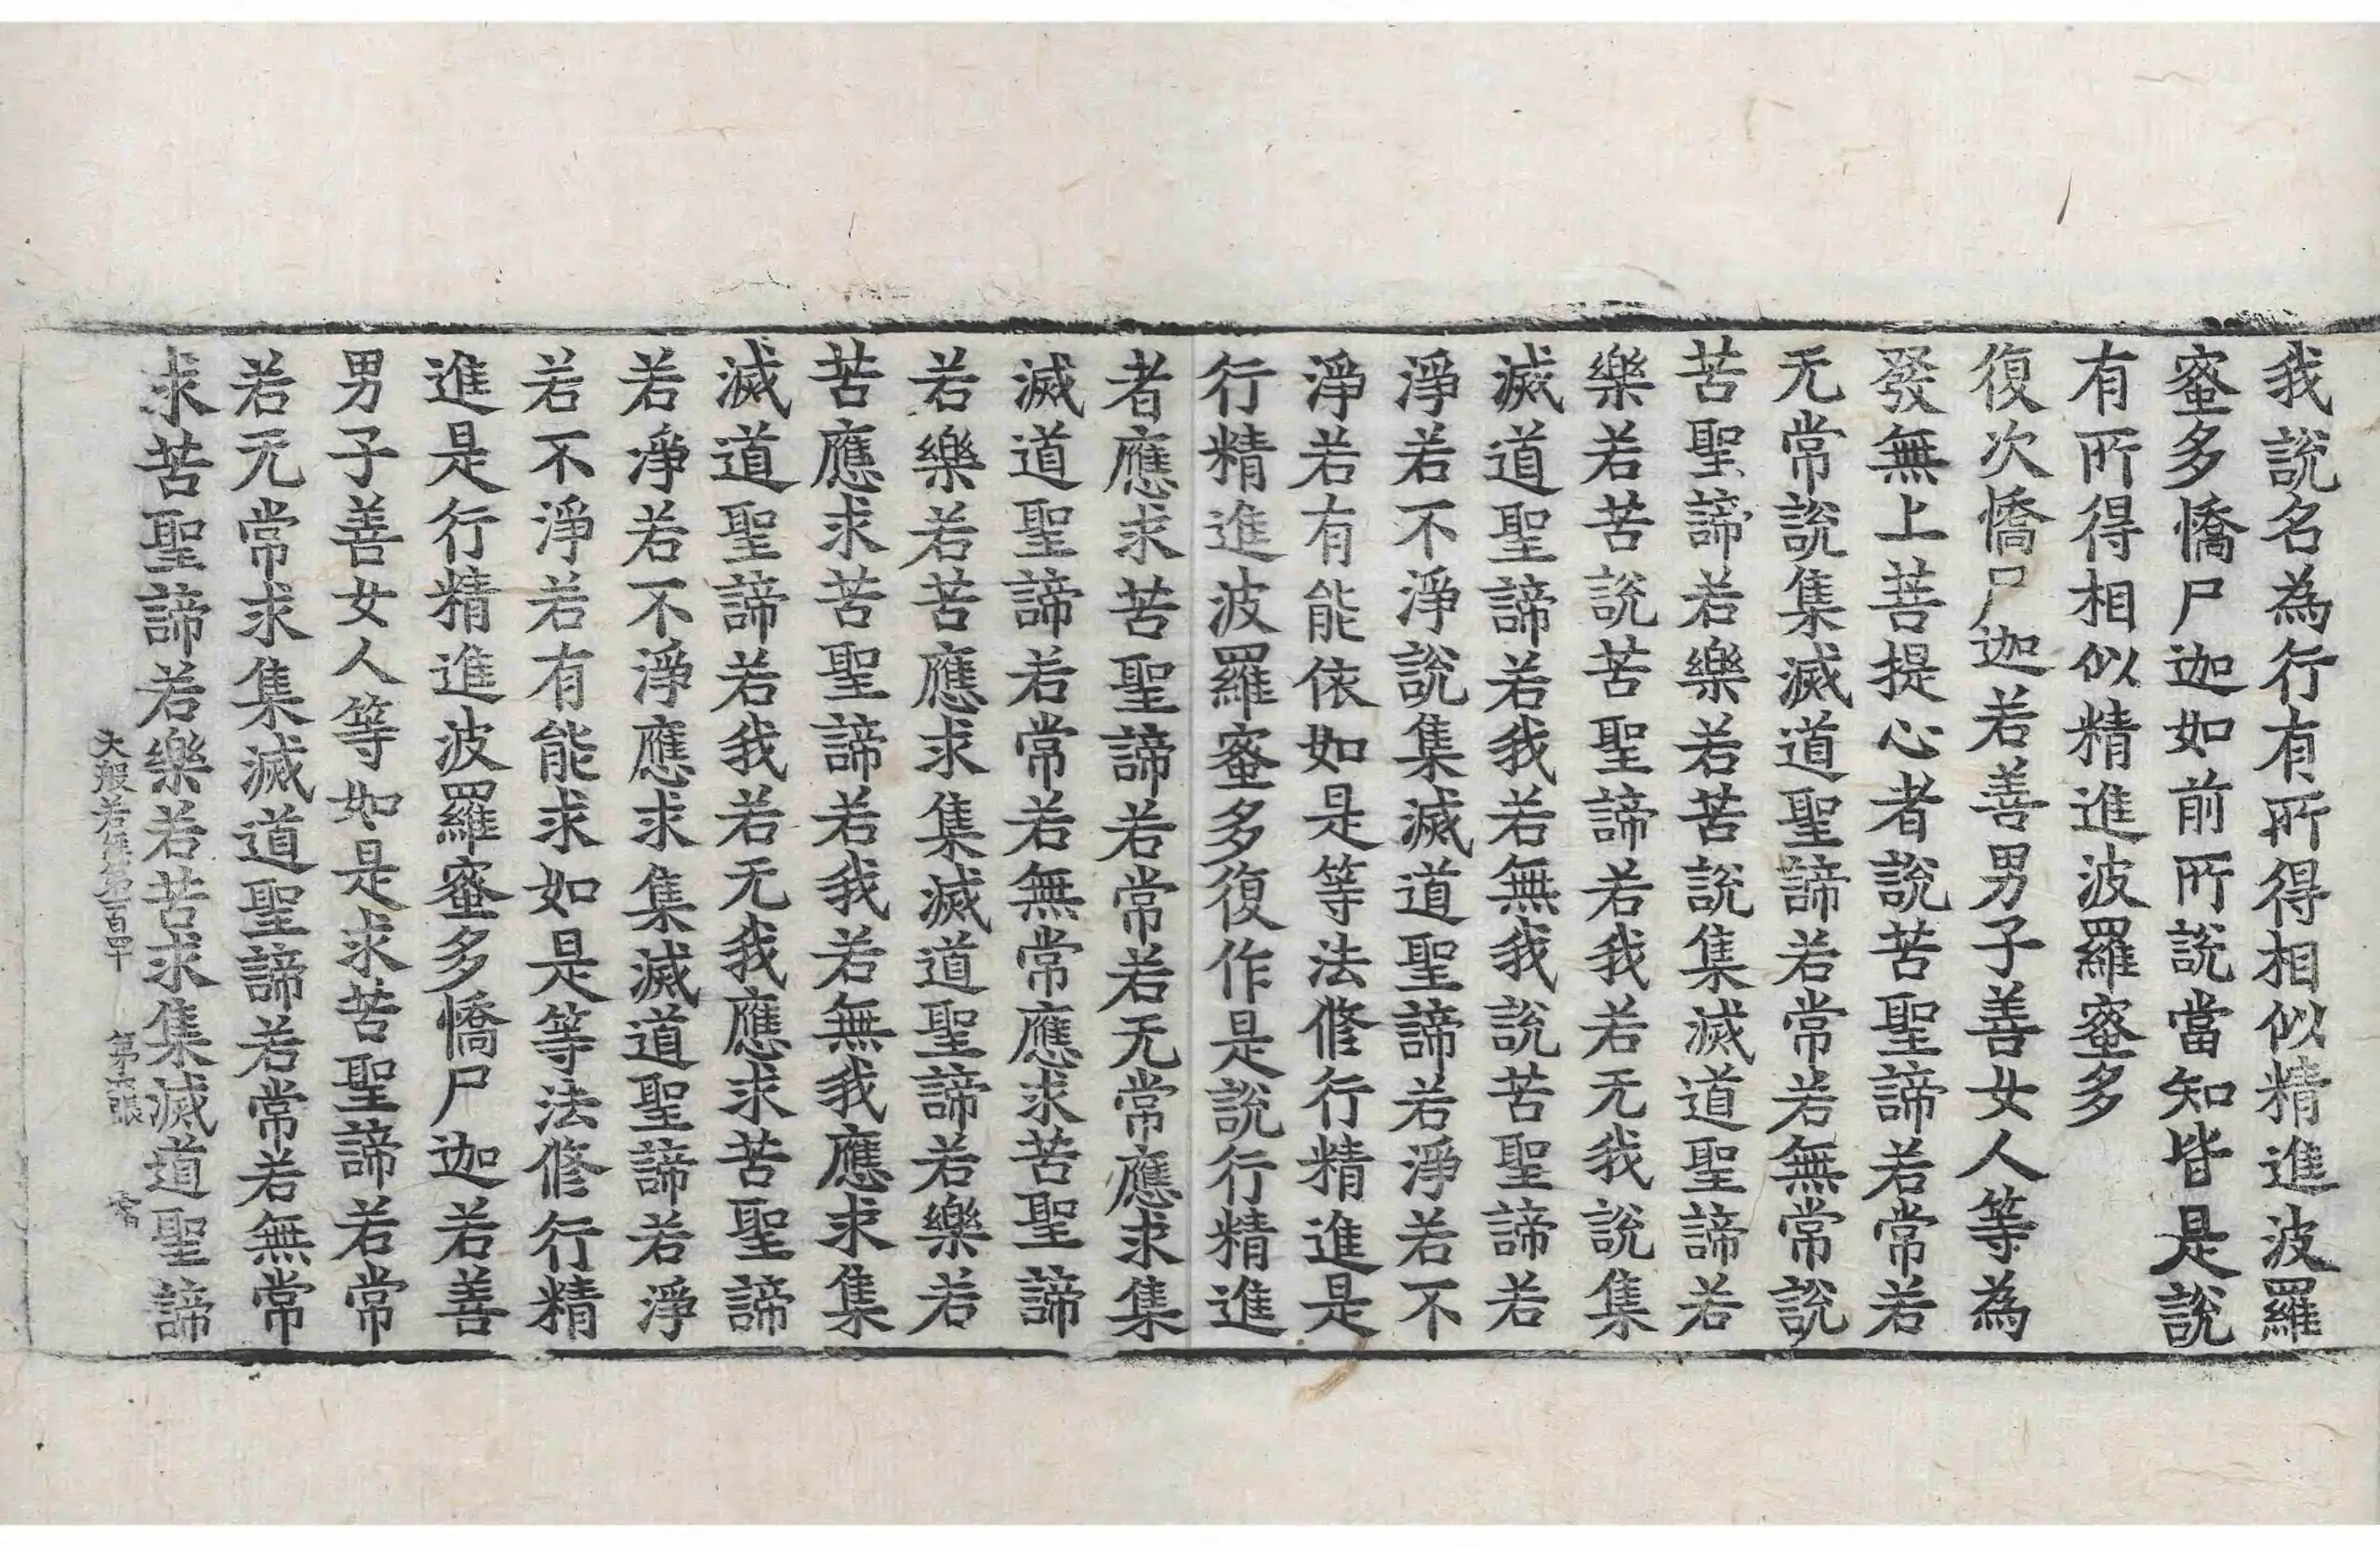 我說名為行有所得相似精進波羅
蜜多憍尸迦如前所說當知皆是說
有所得相似精進波羅蜜多
復次憍尸迦若善男子善女人等為
發無上菩提心者說苦聖諦若常若
无常說集滅道聖諦若常若無常說
苦聖諦若樂若苦說集滅道聖諦若
樂若苦說苦聖諦若我若无我說集
滅道聖諦若我若無我說苦聖諦若
淨若不淨說集滅道聖諦若淨若不
淨若有能依如是等法修行精進是
行精進波羅蜜多復作是說行精進
者應求苦聖諦若常若无常應求集
滅道聖諦若常若無常應求苦聖諦
若樂若苦應求集滅道聖諦若樂若
苦應求苦聖諦若我若無我應求集
滅道聖諦若我若无我應求苦聖諦
若淨若不淨應求集滅道聖諦若淨
若不淨若有能求如是等法修行精
進是行精進波羅蜜多憍尸迦若善
男子善女人等如是求苦聖諦若常
若无常求集滅道聖諦若常若無常
求苦聖諦若樂若苦求集滅道聖諦
大般若經第一百四十 第五張